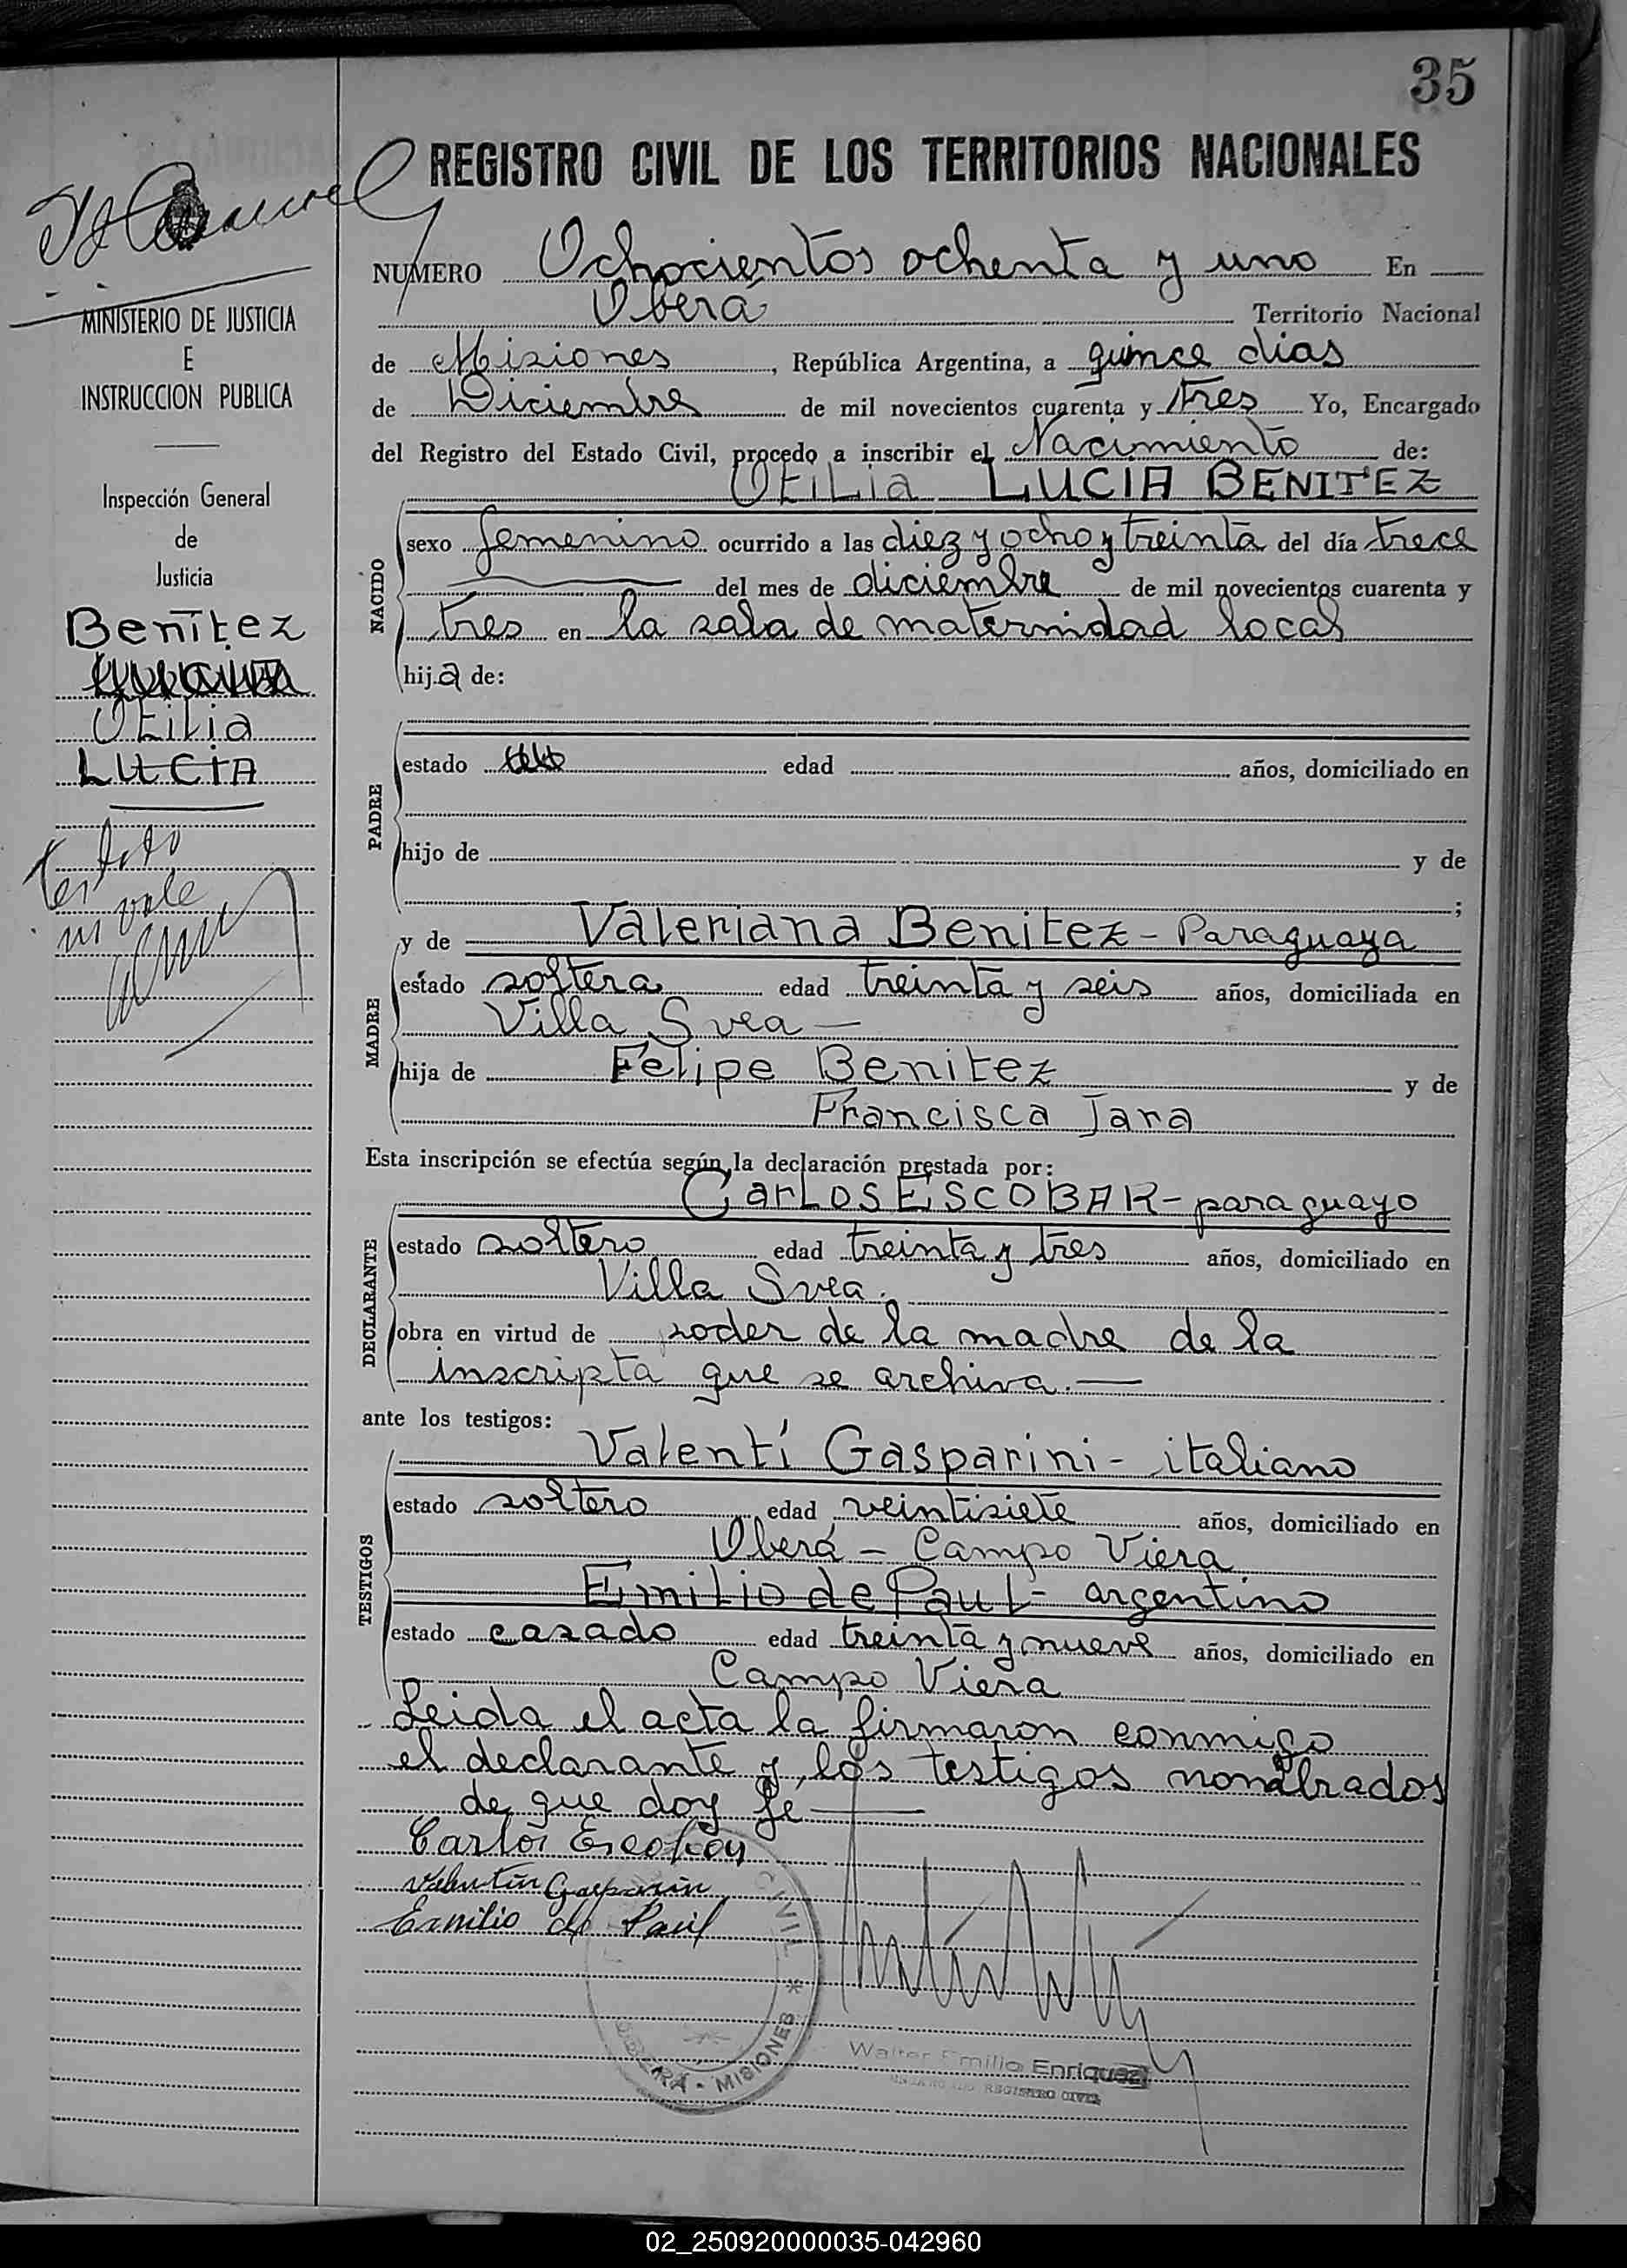 35
REGISTRO CIVIL DE LOS TERRITORIOS NACIONALES
NUMERO Ochocientos ochenta y uno En
Oberá Territorio Nacional
de Misiones, República Argentina, a quince dias
de Diciembre de mil novecientos cuarenta y tres Yo, Encargado
del Registro del Estado Civil, procedo a inscribir el Nacimiento de:
OtiLia LUCIA BENITEZ
NACIDO
sexo femenino ocurrido a las diez y ocho y treinta del día trece
del mes de diciembre de mil novecientos cuarenta y
tres en la sala de maternidad local
hija de:
PADRE
estado edad años, domiciliado en
hijo de y de
;
MADRE
y de Valeriana Benitez - Paraguaya
estado soltera edad treinta y seis años, domiciliada en
Villa Svea —
hija de Felipe Benitez y de
Francisca Jara
Esta inscripción se efectúa según la declaración prestada por:
DECLARANTE
CarLos ESCOBAR - paraguayo
estado soltero edad treinta y tres años, domiciliado en
Villa Svea.
obra en virtud de poder de la madre de la
inscripta que se archiva. —
ante los testigos:
TESTIGOS
Valentí Gasparini - italiano
estado soltero edad veintisiete años, domiciliado en
Oberá - Campo Viera
Emilio de Paul - argentino
estado casado edad treinta y nueve años, domiciliado en
Campo Viera
Leida el acta la firmaron conmigo
el declarante y los testigos nombrados
de que doy fe —
Carlos Escobar
Valentin Gasparin
Emilio de Paul
CIVIL * MISIONES
Walter Emilio Enriquez
REGISTRO CIVIL
MINISTERIO DE JUSTICIA
E
INSTRUCCION PUBLICA
Inspección General
de
Justicia
Benitez
Otilia
LUCIA
Testado
no vale
02_250920000035-042960